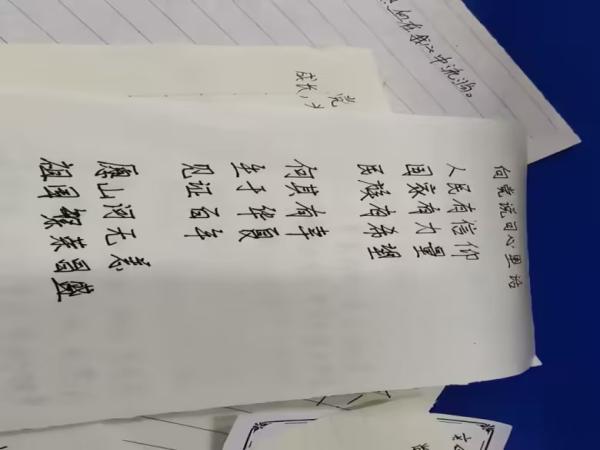 向党说句心里话
人民有信仰
国家有力量
民族有希望
何其有幸
生于华夏
见证百年
愿山河无恙
祖国繁荣昌盛
党
成长，
中流淌。